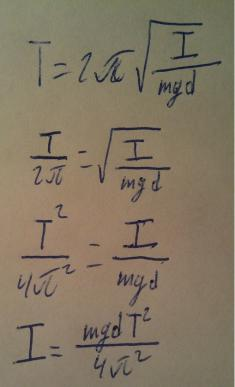 T = 2π√(I/mgd)
T/2π = √(I/mgd)
T²/4π² = I/mgd
I = mgdT²/4π²